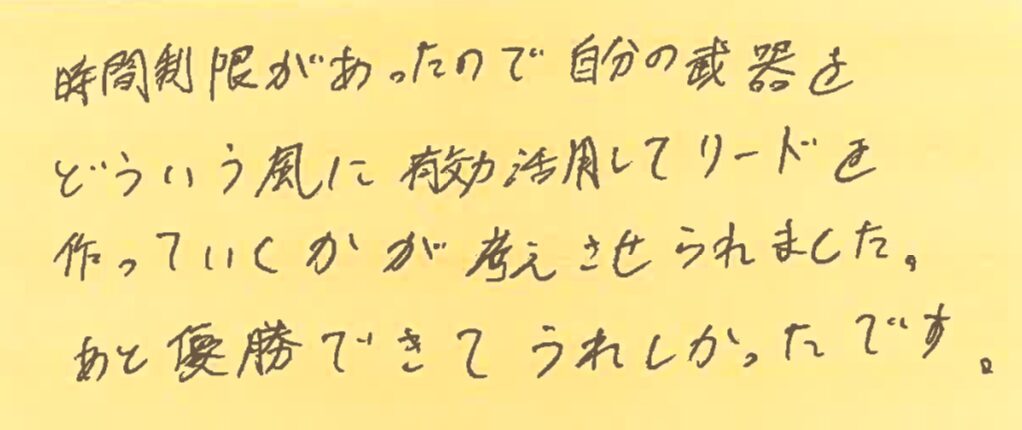 時間制限があったので自分の武器を
どういう風に有効活用してリードを
作っていくかが考えさせられました。
あと優勝できてうれしかったです。